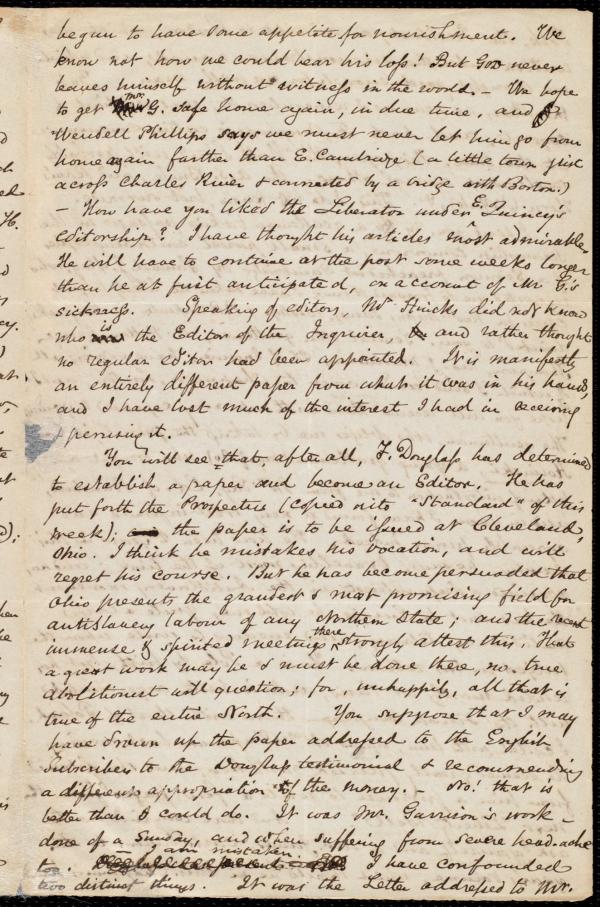 begun to have some appetite for nourishment. We
know not how we could bear his loss! But God never
leaves himself without witness in the world. – We hope
to get Mr. G. safe home again, in due time, and
Wendell Phillips says we must never let him go from
home again farther than E. Cambridge (a little town just
across Charles River & connected by a bridge with Boston.)
– How have you liked the Liberator under E. Quincy's
editorship? I have thought his articles most admirable.
He will have to continue at the post some weeks longer
than he at first anticipated, on account of Mr. G's
sickness. Speaking of editors, Mr Hincks did not know
who is the Editor of the Inquirer, and rather thought
no regular editor had been appointed. It is manifestly
an entirely different paper from what it was in his hands,
and I have lost much of the interest I had in receiving
& perusing it.
You will see that, after all, F. Douglass has determined
to establish a paper and become an Editor. He has
put forth the Prospectus (copied into "Standard" of this
week); the paper is to be issued at Cleveland,
Ohio. I think he mistakes his vocation, and will
regret his course. But he has become persuaded that
Ohio presents the grandest & most promising field for
antislavery labour of any Northern State; and the recent
immense & spirited meetings there strongly attest this. That
a great work may be & must be done there, no true
abolitionist will question; for, unhappily, all that is
true of the entire North. You suppose that I may
have drawn up the paper addressed to the English
Subscribers to the Douglass testimonial & recommending
a different appropriation of the money. – No! that is
better than I could do. It was Mr. Garrison's work –
done of a Sunday, and when suffering from severe head-ache
too. – I am mistaken I have confounded
two distinct things. It was the Letter addressed to Mr.